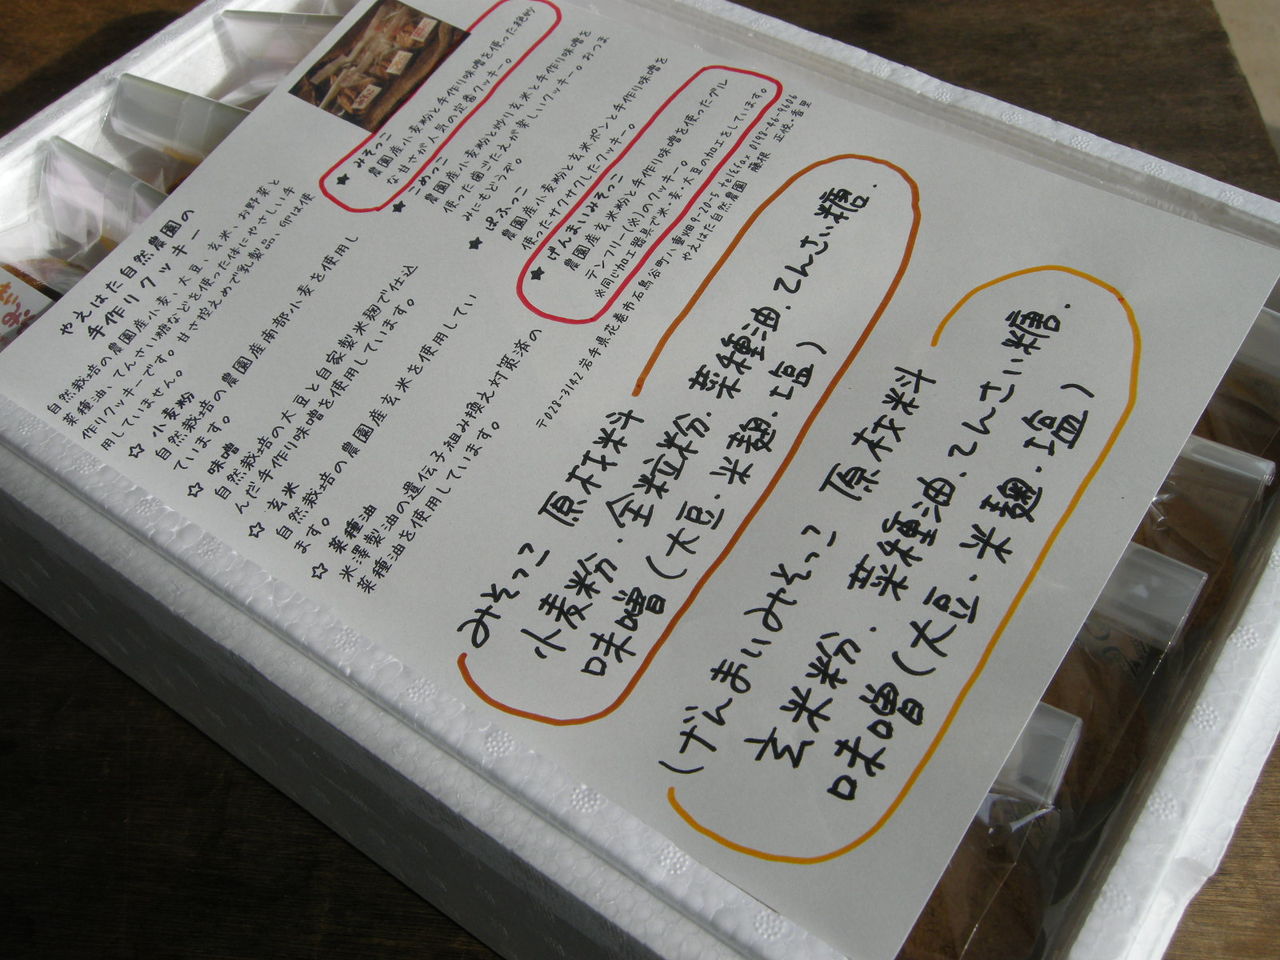 やえはた自然農園の
手作りクッキー
自然栽培の農園産小麦、大豆、玄米、お野菜と
菜種油、てんさい糖などを使った体にやさしい手
作りクッキーです。甘さ控えめで乳製品、卵は使
用していません。
☆ 小麦粉
自然栽培の農園産南部小麦を使用し
ています。
☆ 味噌
自然栽培の大豆と自家製米麹で仕込
んだ手作り味噌を使用しています。
☆ 玄米
自然栽培の農園産玄米を使用してい
ます。
☆ 菜種油
米澤製油の遺伝子組み換え対策済の
菜種油を使用しています。
★ みそっこ
農園産小麦粉と手作り味噌を使った絶妙
な甘さが人気の定番クッキー。
★ こめっこ
農園産小麦粉と炒り玄米と手作り味噌を
使った歯ごたえが楽しいクッキー。おつま
みにもどうぞ。
★ ぽふっこ
農園産小麦粉と玄米ポンと手作り味噌を
使ったサクサクしたクッキー。
★ げんまいみそっこ
農園産玄米粉と手作り味噌を使ったグル
テンフリー(※)のクッキー。
※同じ加工器具で米・麦・大豆の加工をしています。
〒028-3142 岩手県花巻市石鳥谷町八重畑9-20-5 tel&fax 0198-46-9606
やえはた自然農園 藤根 正悦・香里
みそっこ 原材料
小麦粉・全粒粉・菜種油、てんさい糖・
味噌(大豆・米麹・塩)
げんまいみそっこ 原材料
玄米粉・菜種油、てんさい糖・
味噌(大豆・米麹・塩)